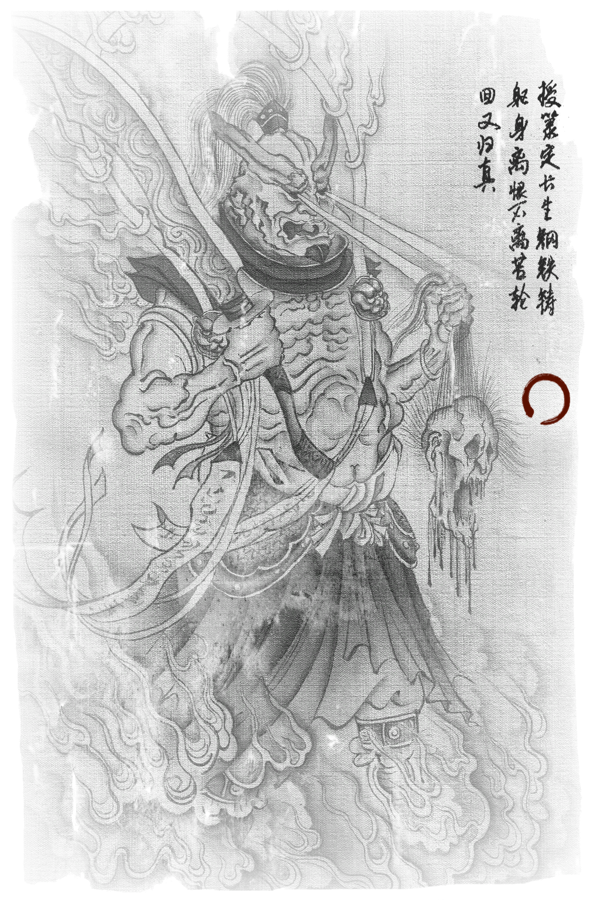 授箓定长生钢铁铸
躯身离恨不离苦轮
回又归真